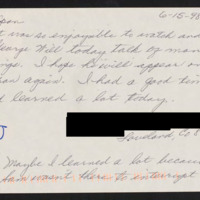 -span 6-15-98
t was so enjoyable to watch and
earge Will today talk of man
ngs. I hope he will appear o
pan again. I had a good tim
d learned a lot today.
Loveland, Co 8
Maybe I learned a lot becau
Sam wasn't there to interrupt